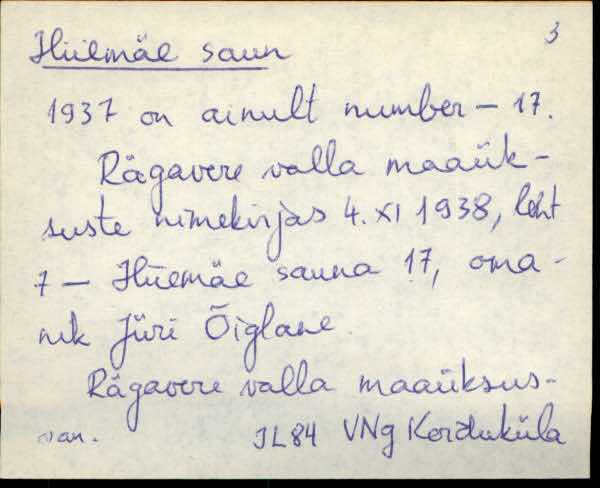 3
Hiiemäe saun
1937 on ainult number – 17.
Rägavere valla maaük-
suste nimekirjas 4. XI 1938, leht
7 – Hiiemäe sauna 17, oma-
nik Jüri Õiglane.
Rägavere valla maaüksus-
van. JL84 VNg Korduküla